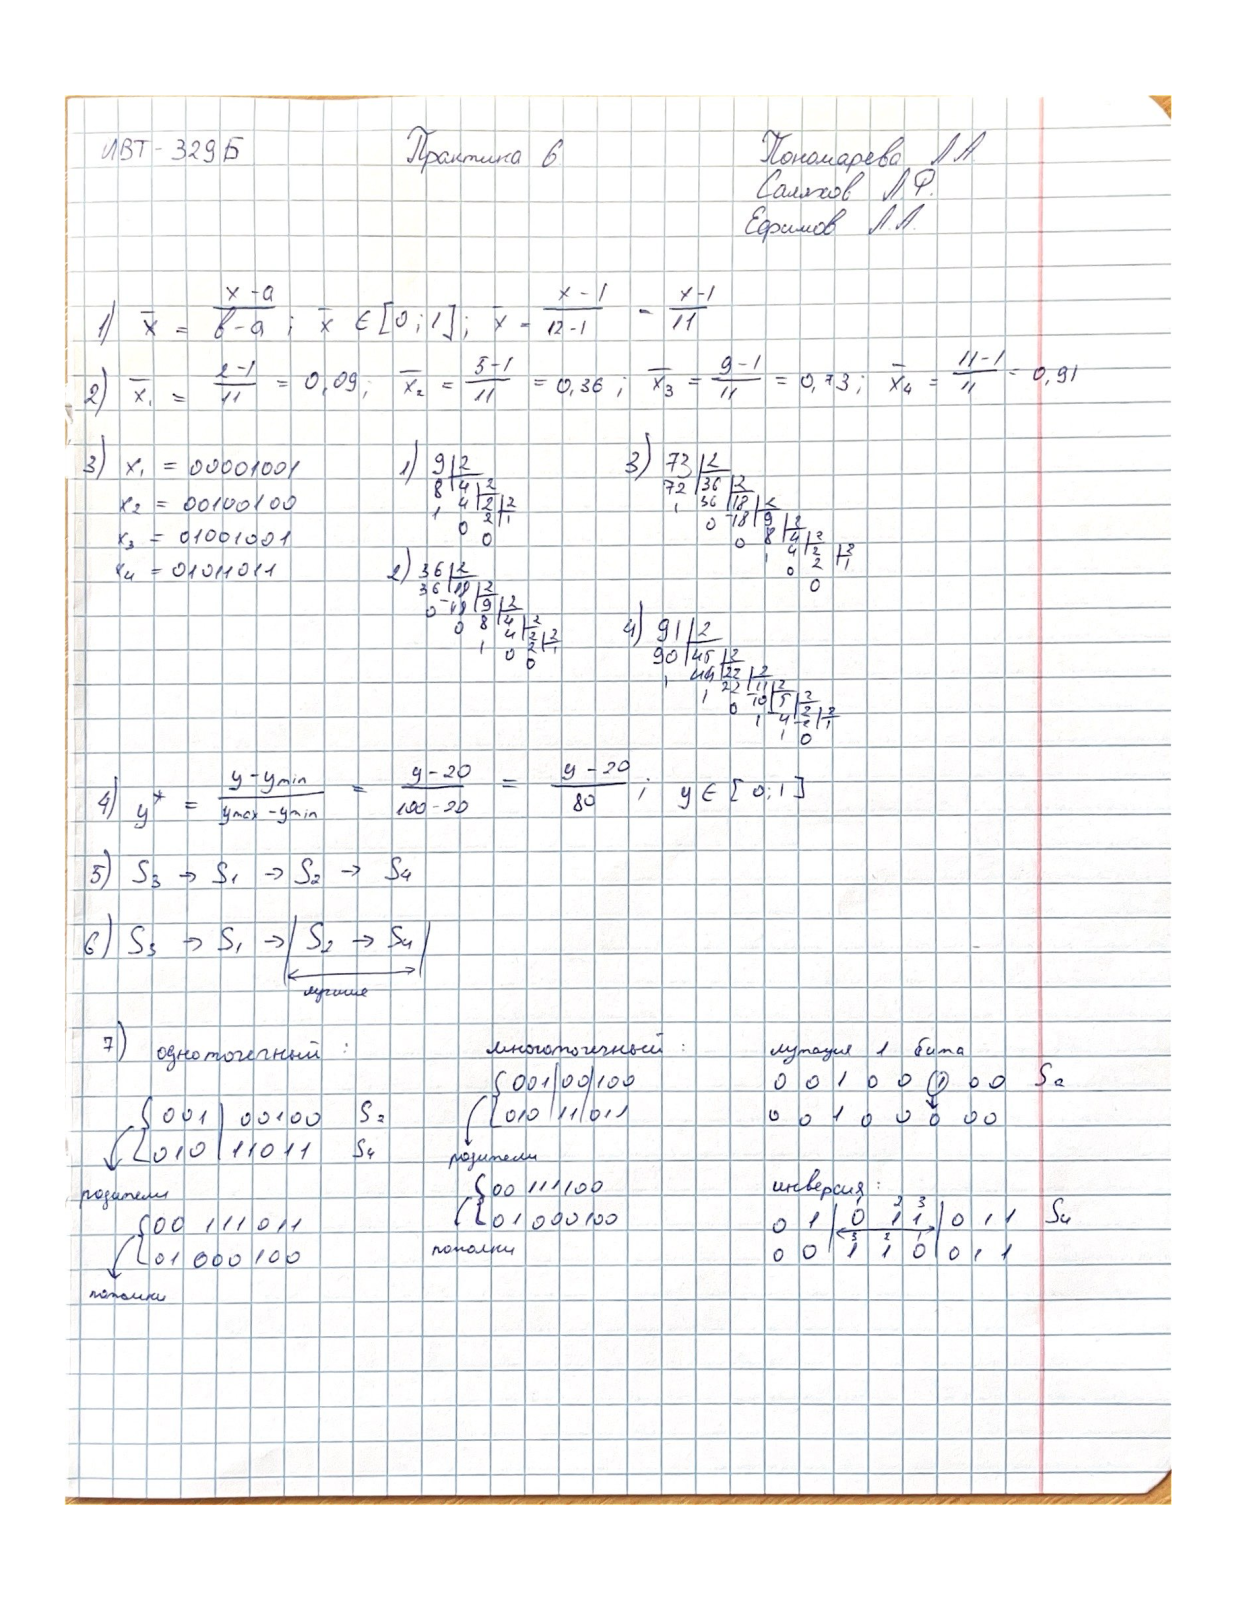 ИВТ-329Б Практика 6 Пономарева Л А
Саляхов Л Ф.
Ефимов Л Л.
1) x̄ = (x-a)/(b-a); x̄ ∈ [0;1]; x̄ = (x-1)/(12-1) = (x-1)/11
2) x̄₁ = (2-1)/11 = 0,09; x̄₂ = (5-1)/11 = 0,36; x̄₃ = (9-1)/11 = 0,73; x̄₄ = (11-1)/11 = 0,91
3) x₁ = 00001001
x₂ = 00100100
x₃ = 01001001
x₄ = 01011011
1) 9 2
8 4 2
1 4 2 2
0 2 1
0
2) 36 2
36 18 2
0 18 9 2
0 8 4 2
1 4 2 2
0 2 1
0
3) 73 2
72 36 2
1 36 18 2
0 18 9 2
0 8 4 2
1 4 2 2
0 2 1
0
4) 91 2
90 45 2
1 44 22 2
1 22 11 2
0 10 5 2
1 4 2 2
1 2 1
0
4) y* = (y-ymin)/(ymax-ymin) = (y-20)/(100-20) = (y-20)/80; y ∈ [0;1]
5) S₃ → S₁ → S₂ → S₄
6) S₃ → S₁ → | S₂ → S₄ |
лучшие
7) одноточечный:
001 | 00100 S₂
010 | 11011 S₄
родители
00 111 011
01 000 100
потомки
многоточечный:
001|00|100
010|11|011
родители
00 111100
01 000100
потомки
мутация 1 бита
0 0 1 0 0 1 0 0 S₂
0 0 1 0 0 0 0 0
инверсия:
1 2 3
0 1 | 0 1 1 | 0 1 1 S₄
3 2 1
0 0 1 1 0 0 1 1